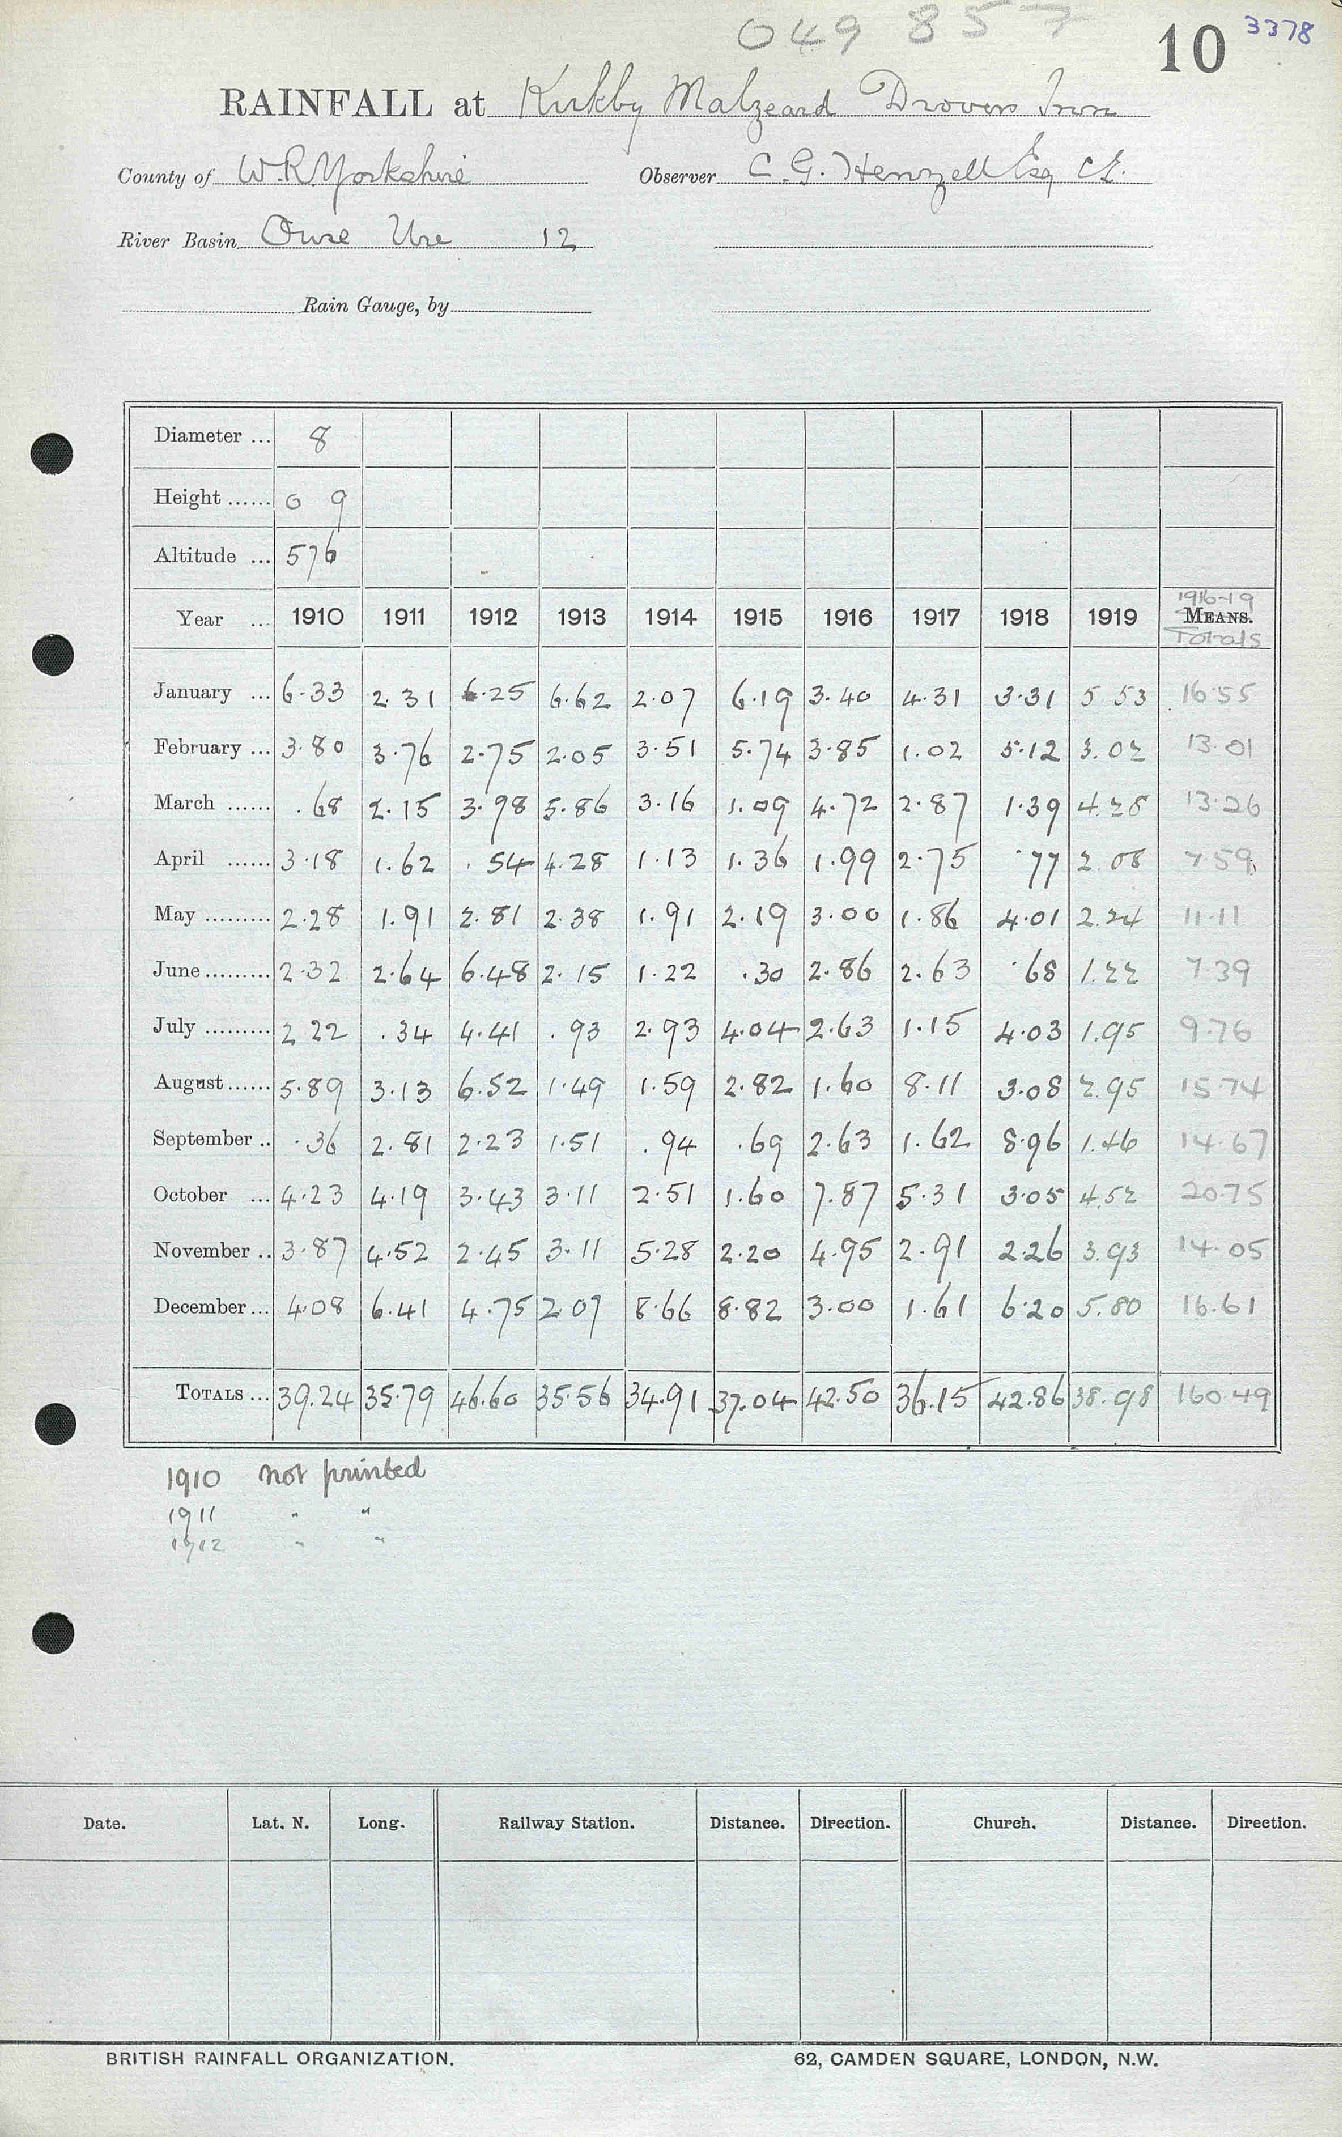 049 857
10 3378
RAINFALL at Kirkby Malzeard Drovers Inn
County of W.R. Yorkshire Observer C. G. Henzell Esq C.E.
River Basin Ouse Ure 12
Rain Gauge, by
Diameter ... 8
Height ...... 0 9
Altitude ... 576
1916-19
Year ... 1910 1911 1912 1913 1914 1915 1916 1917 1918 1919 MEANS.
Totals
January ... 6.33 2.31 6.25 6.62 2.07 6.19 3.40 4.31 3.31 5.53 16.55
February ... 3.80 3.76 2.75 2.05 3.51 5.74 3.85 1.02 5.12 3.02 13.01
March ...... .68 2.15 3.98 5.86 3.16 1.09 4.72 2.87 1.39 4.28 13.26
April ...... 3.18 1.62 .54 4.28 1.13 1.36 1.99 2.75 .77 2.08 7.59
May ......... 2.28 1.91 2.81 2.38 1.91 2.19 3.00 1.86 4.01 2.24 11.11
June ......... 2.32 2.64 6.48 2.15 1.22 .30 2.86 2.63 .68 1.22 7.39
July ......... 2.22 .34 4.41 .93 2.93 4.04 2.63 1.15 4.03 1.95 9.76
August ...... 5.89 3.13 6.52 1.49 1.59 2.82 1.60 8.11 3.08 2.95 15.74
September .. .36 2.81 2.23 1.51 .94 .69 2.63 1.62 8.96 1.46 14.67
October ... 4.23 4.19 3.43 3.11 2.51 1.60 7.87 5.31 3.05 4.52 20.75
November .. 3.87 4.52 2.45 3.11 5.28 2.20 4.95 2.91 2.26 3.93 14.05
December ... 4.08 6.41 4.75 2.07 8.66 8.82 3.00 1.61 6.20 5.80 16.61
TOTALS ... 39.24 35.79 46.60 35.56 34.91 37.04 42.50 36.15 42.86 38.98 160.49
1910 not printed
1911 " "
1912 " "
Date. Lat. N. Long. Railway Station. Distance. Direction. Church. Distance. Direction.
BRITISH RAINFALL ORGANIZATION. 62, CAMDEN SQUARE, LONDON, N.W.